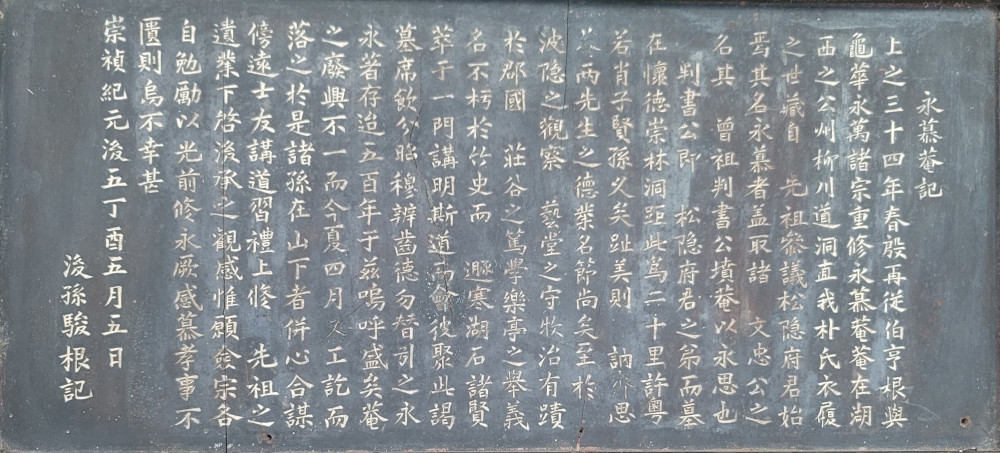 永慕菴記
上之三十四年春殷再従伯亨根與
龜華永萬諸宗重修永慕菴菴在湖
西之公州柳川道洞直我朴氏衣履
之世藏自 先祖叅議松隐府君始
焉其名永慕者盖取諸 文忠公之
名其 曾祖判書公墳菴以永思也
判書公即 松隐府君之弟而墓
在懷德崇林洞距此為二十里許粤
若肖子賢孫久矣趾美則 訥齋思
菴兩先生之德業名節尚矣至於
波隐之觀察 藝堂之守牧治有蹟
於郡國 荘谷之篤學樂亭之舉義
名不朽於竹史而 遯寒湖石諸賢
萃于一門講明斯道而會彼聚此謁
墓席飲分昭穆辨齒德勿替引之永
永著存迨五百年于兹嗚呼盛矣菴
之廢興不一而今夏四月又工訖而
落之於是諸孫在山下者併心合謀
傍遠士友講道習禮上修 先祖之
遺業下啓後承之觀感惟願僉宗各
自勉勵以光前修永厥感慕孝事不
匱則烏不幸甚
崇禎紀元後五丁酉五月五日
後孫駿根記